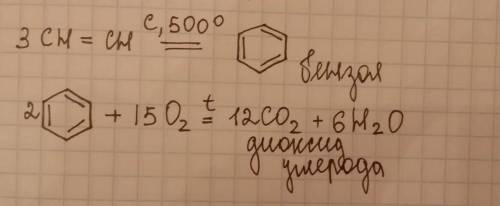 3 CH = CH C, 500°
бензол
2 + 15 O₂ t = 12CO₂ + 6H₂O
диоксид
углерода